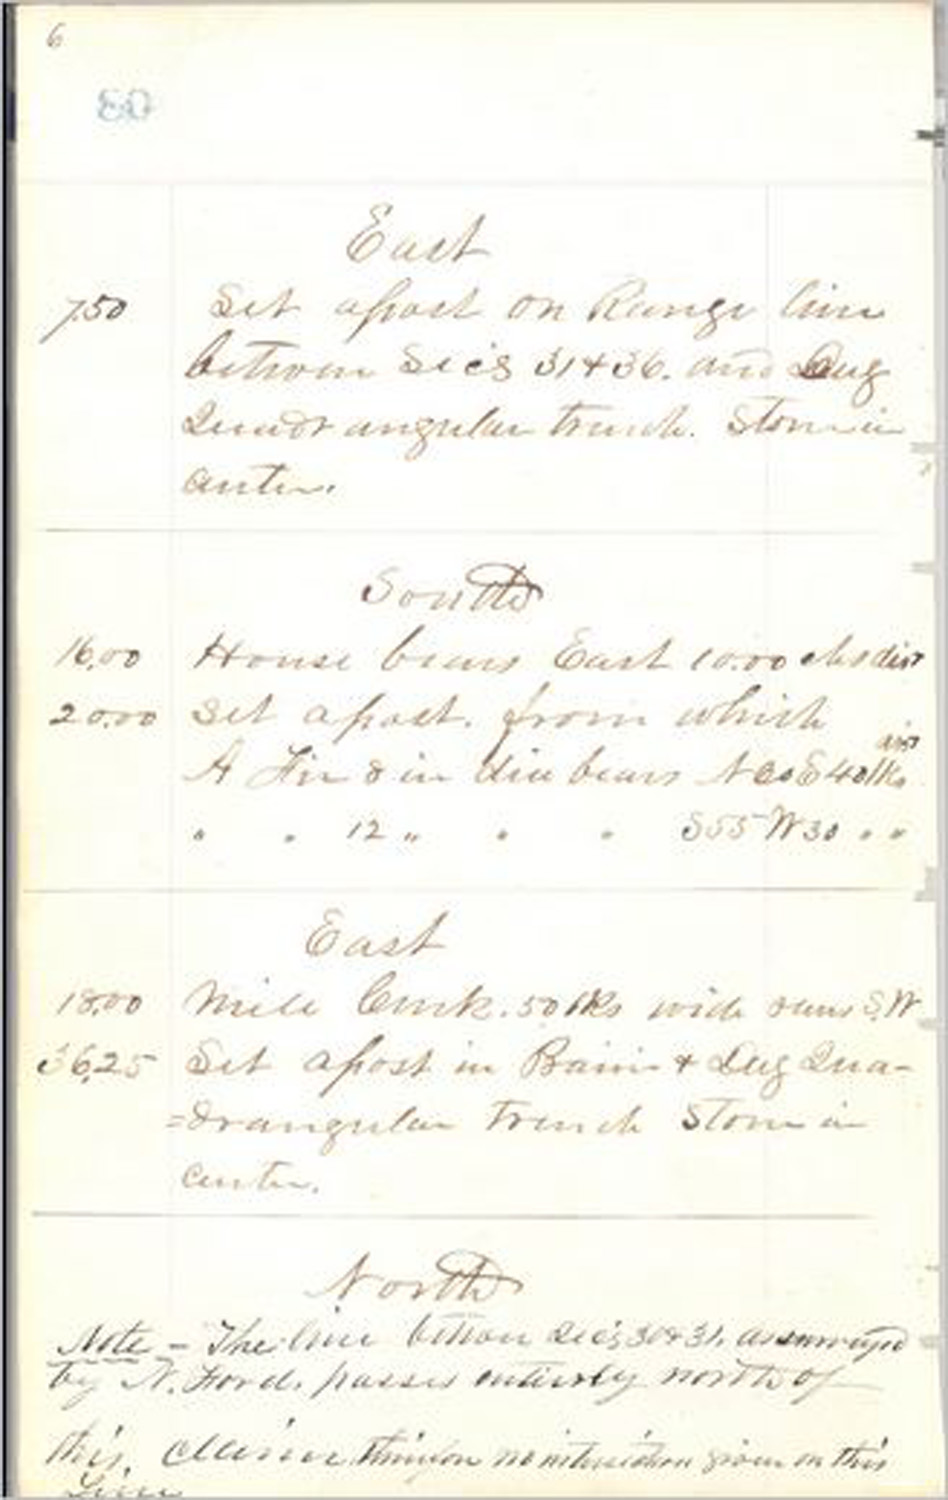 6
East
7.50 Set a post on Range line
between Sec's 31 & 36. and Dug
Quadrangular trench. Stone in
center.
South
16.00 House bears East 10.00 chs dist
20.00 Set a post. from which
dist
A Fir 8 in dia bears N E 40 lks
" " 12 " " " S 55 W 30 " "
East
18.00 Mill Creek. 50 lks wide runs S.W
36.25 Set a post in Prairie & Dug Qua-
=drangular trench Stone in
center.
North
Note - The line between Sec's 30 & 31. as surveyed
by N. Ford. passes entirely north of
this. Claim therefore no intersection given on this
Line